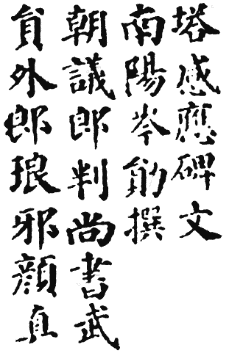 塔感應碑文
南陽岑勛撰
朝議郎判尚書武
負外郎琅邪顏真